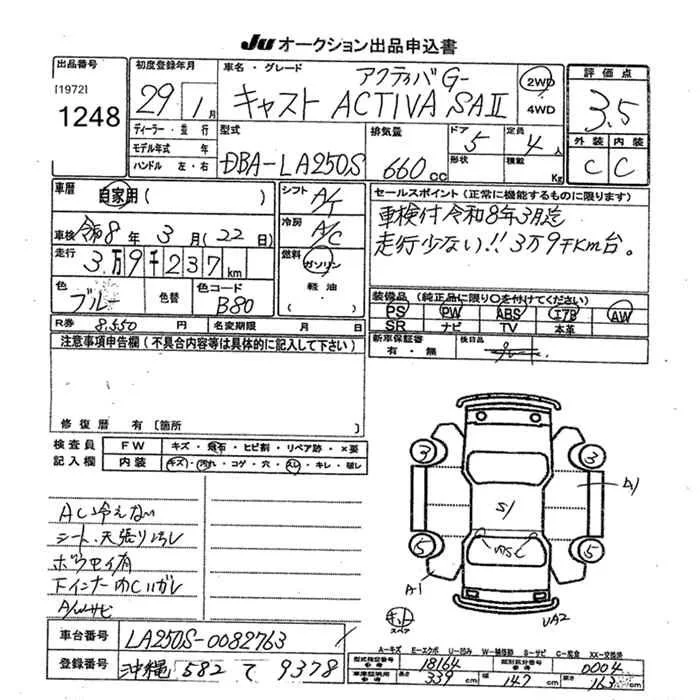 JU オークション出品申込書
出品番号
[1972]
1248
初度登録年月
29 1月
車名・グレード
アクティバG-
キャスト ACTIVA SAII
2WD
4WD
評価点
3.5
外装 内装
C C
ディーラー・並行
モデル年式 年
ハンドル 左・右
型式
DBA-LA250S
排気量
660cc
ドア 5
形状
定員 4人
積載 Kg
車歴
自家用( )
車検 令和8年3月(22日)
走行 3万9千237km
色 ブルー
色替
色コード B80
シフト A/T
冷房 A/C
燃料 ガソリン
軽油
セールスポイント(正常に機能するものに限ります)
車検付令和8年3月迄
走行少ない!!3万9千Km台。
装備品(純正品に限り○を付けてください)
PS PW ABS エアB AW
SR ナビ TV 本革
R券 8,550円 名変期限 月 日
新車保証書
有・無
後日品
注意事項申告欄(不具合内容等は具体的に記入して下さい)
修復歴 有[箇所
検査員
記入欄
FW キズ・飛石・ヒビ割・リペア跡・×要
内装 キズ・汚れ・コゲ・穴・スレ・キレ・破レ
AC冷えない
シート、天張り汚レ
下インナー
3
3
5
5
S1
A1
スペア
A-キズ E-エクボ U-凹み W-補修跡 S-サビ C-腐食 XX-交換済
車台番号 LA250S-0082763
登録番号 沖縄 582 て 9378
型式指定番号 18164
類別区分番号 0004
車庫証明用 長さ 339cm 幅 147cm 高さ 163cm